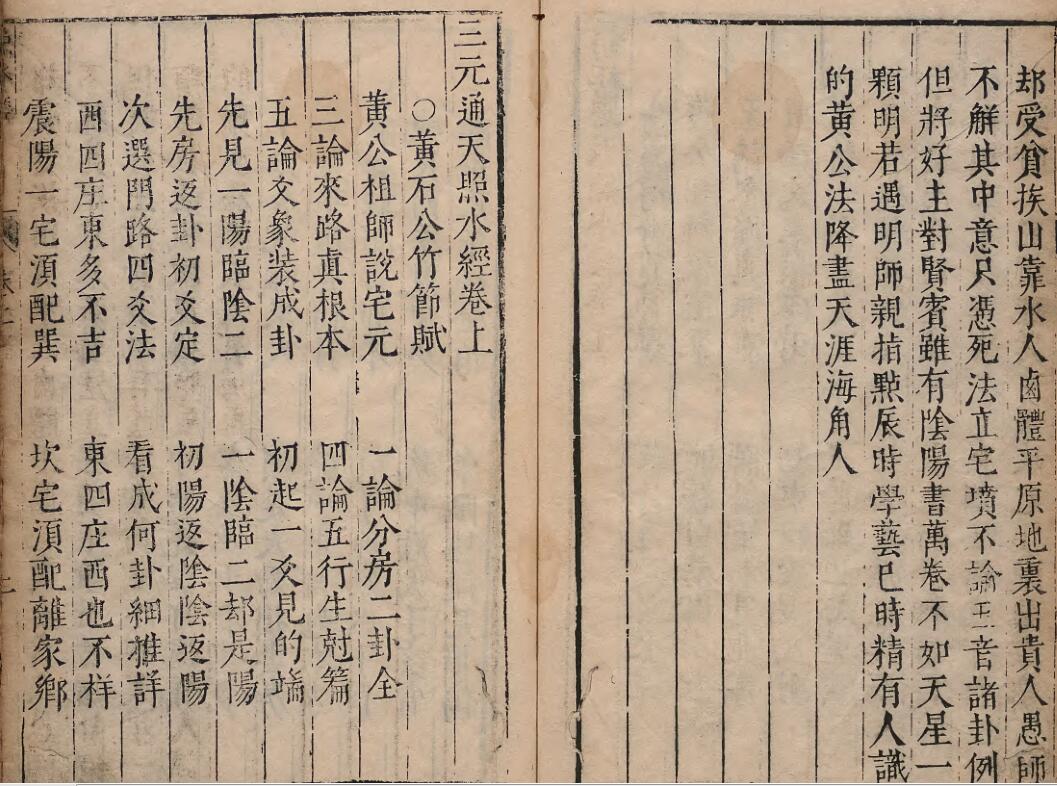 却受貧挨山靠水人鹵體平原地裏出貴人愚師
不解其中意只憑死法立宅墳不論五音諸卦例
但將好主對賢賓雖有陰陽書萬卷不如天星一
顆明若遇明師親指㸃辰時學藝巳時精有人識
的黄公法降盡天涯海角人
三元通天照水經卷上
○黄石公竹節賦
黄公祖師說宅元 一論分房二卦全
三論來路真根本 四論五行生尅篇
五論爻象装成卦 初起一爻見的端
先見一陽臨陰二 一陰臨二却是陽
先房返卦初爻定 初陽返陰陰返陽
次選門路四爻法 看成何卦細推詳
酉四庄東多不吉 東四庄西也不样
震陽一宅湏配巽 坎宅湏配離家鄉